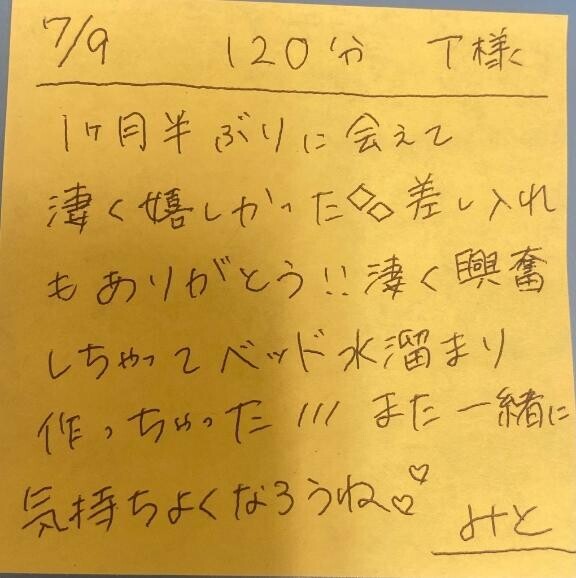 7/9 120分 T様
1ヶ月半ぶりに会えて
凄く嬉しかった◇◇差し入れ
もありがとう!!凄く興奮
しちゃってベッド水溜まり
作っちゃった/// また一緒に
気持ちよくなろうね♡♡
みと